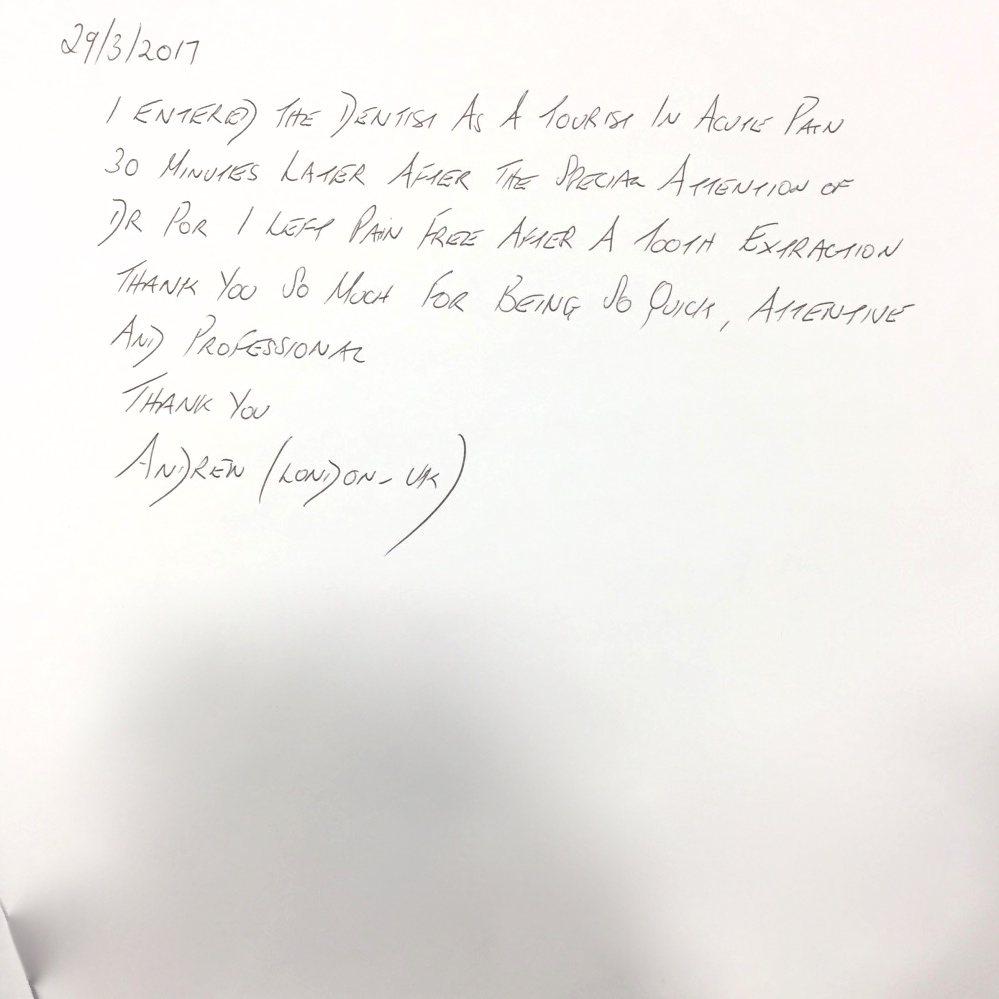 29/3/2017
I ENTERED THE DENTIST AS A TOURIST IN ACUTE PAIN
30 MINUTES LATER AFTER THE SPECIAL ATTENTION OF
DR POR I LEFT PAIN FREE AFTER A TOOTH EXTRACTION
THANK YOU SO MUCH FOR BEING SO QUICK, ATTENTIVE
AND PROFESSIONAL
THANK YOU
ANDREW (LONDON- UK)